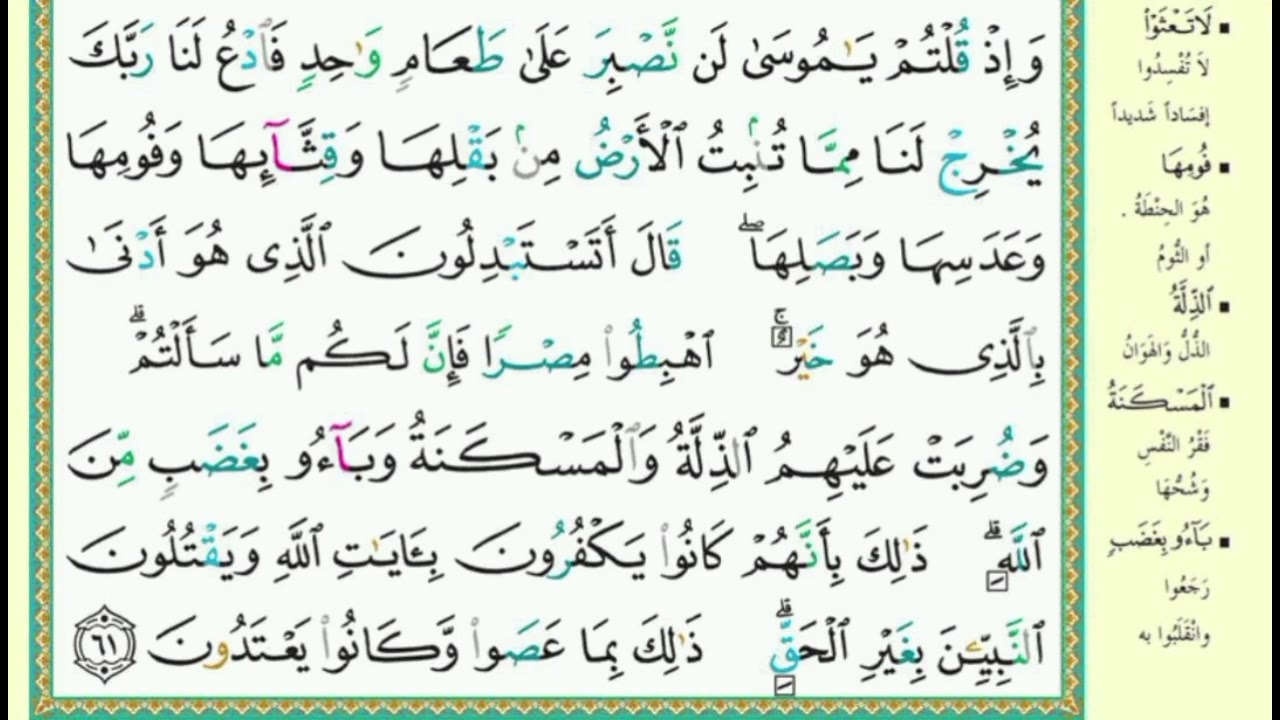 وَإِذْ قُلْتُمْ يَـٰمُوسَىٰ لَن نَّصْبِرَ عَلَىٰ طَعَامٍ وَٰحِدٍ فَٱدْعُ لَنَا رَبَّكَ
يُخْرِجْ لَنَا مِمَّا تُنۢبِتُ ٱلْأَرْضُ مِنۢ بَقْلِهَا وَقِثَّآئِهَا وَفُومِهَا
وَعَدَسِهَا وَبَصَلِهَا ۖ قَالَ أَتَسْتَبْدِلُونَ ٱلَّذِى هُوَ أَدْنَىٰ
بِٱلَّذِى هُوَ خَيْرٌ ۚ ٱهْبِطُوا۟ مِصْرًا فَإِنَّ لَكُم مَّا سَأَلْتُمْ ۗ
وَضُرِبَتْ عَلَيْهِمُ ٱلذِّلَّةُ وَٱلْمَسْكَنَةُ وَبَآءُو بِغَضَبٍ مِّنَ
ٱللَّهِ ۗ ذَٰلِكَ بِأَنَّهُمْ كَانُوا۟ يَكْفُرُونَ بِـَٔايَـٰتِ ٱللَّهِ وَيَقْتُلُونَ
ٱلنَّبِيِّـۧنَ بِغَيْرِ ٱلْحَقِّ ۗ ذَٰلِكَ بِمَا عَصَوا۟ وَّكَانُوا۟ يَعْتَدُونَ ٦١
▪ لَا تَعْثَوْا۟
لَا تُفْسِدُوا
إِفسَاداً شَدِيداً
▪ فُومِهَا
هُوَ الحِنْطَةُ .
أو الثُّومُ
▪ ٱلذِّلَّةُ
الذُّلُّ وَالهَوَانُ
▪ ٱلْمَسْكَنَةُ
فَقْرُ النَّفْسِ
وَشُحُّهَا
▪ بَآءُو بِغَضَبٍ
رَجَعُوا
وانْقَلَبُوا به